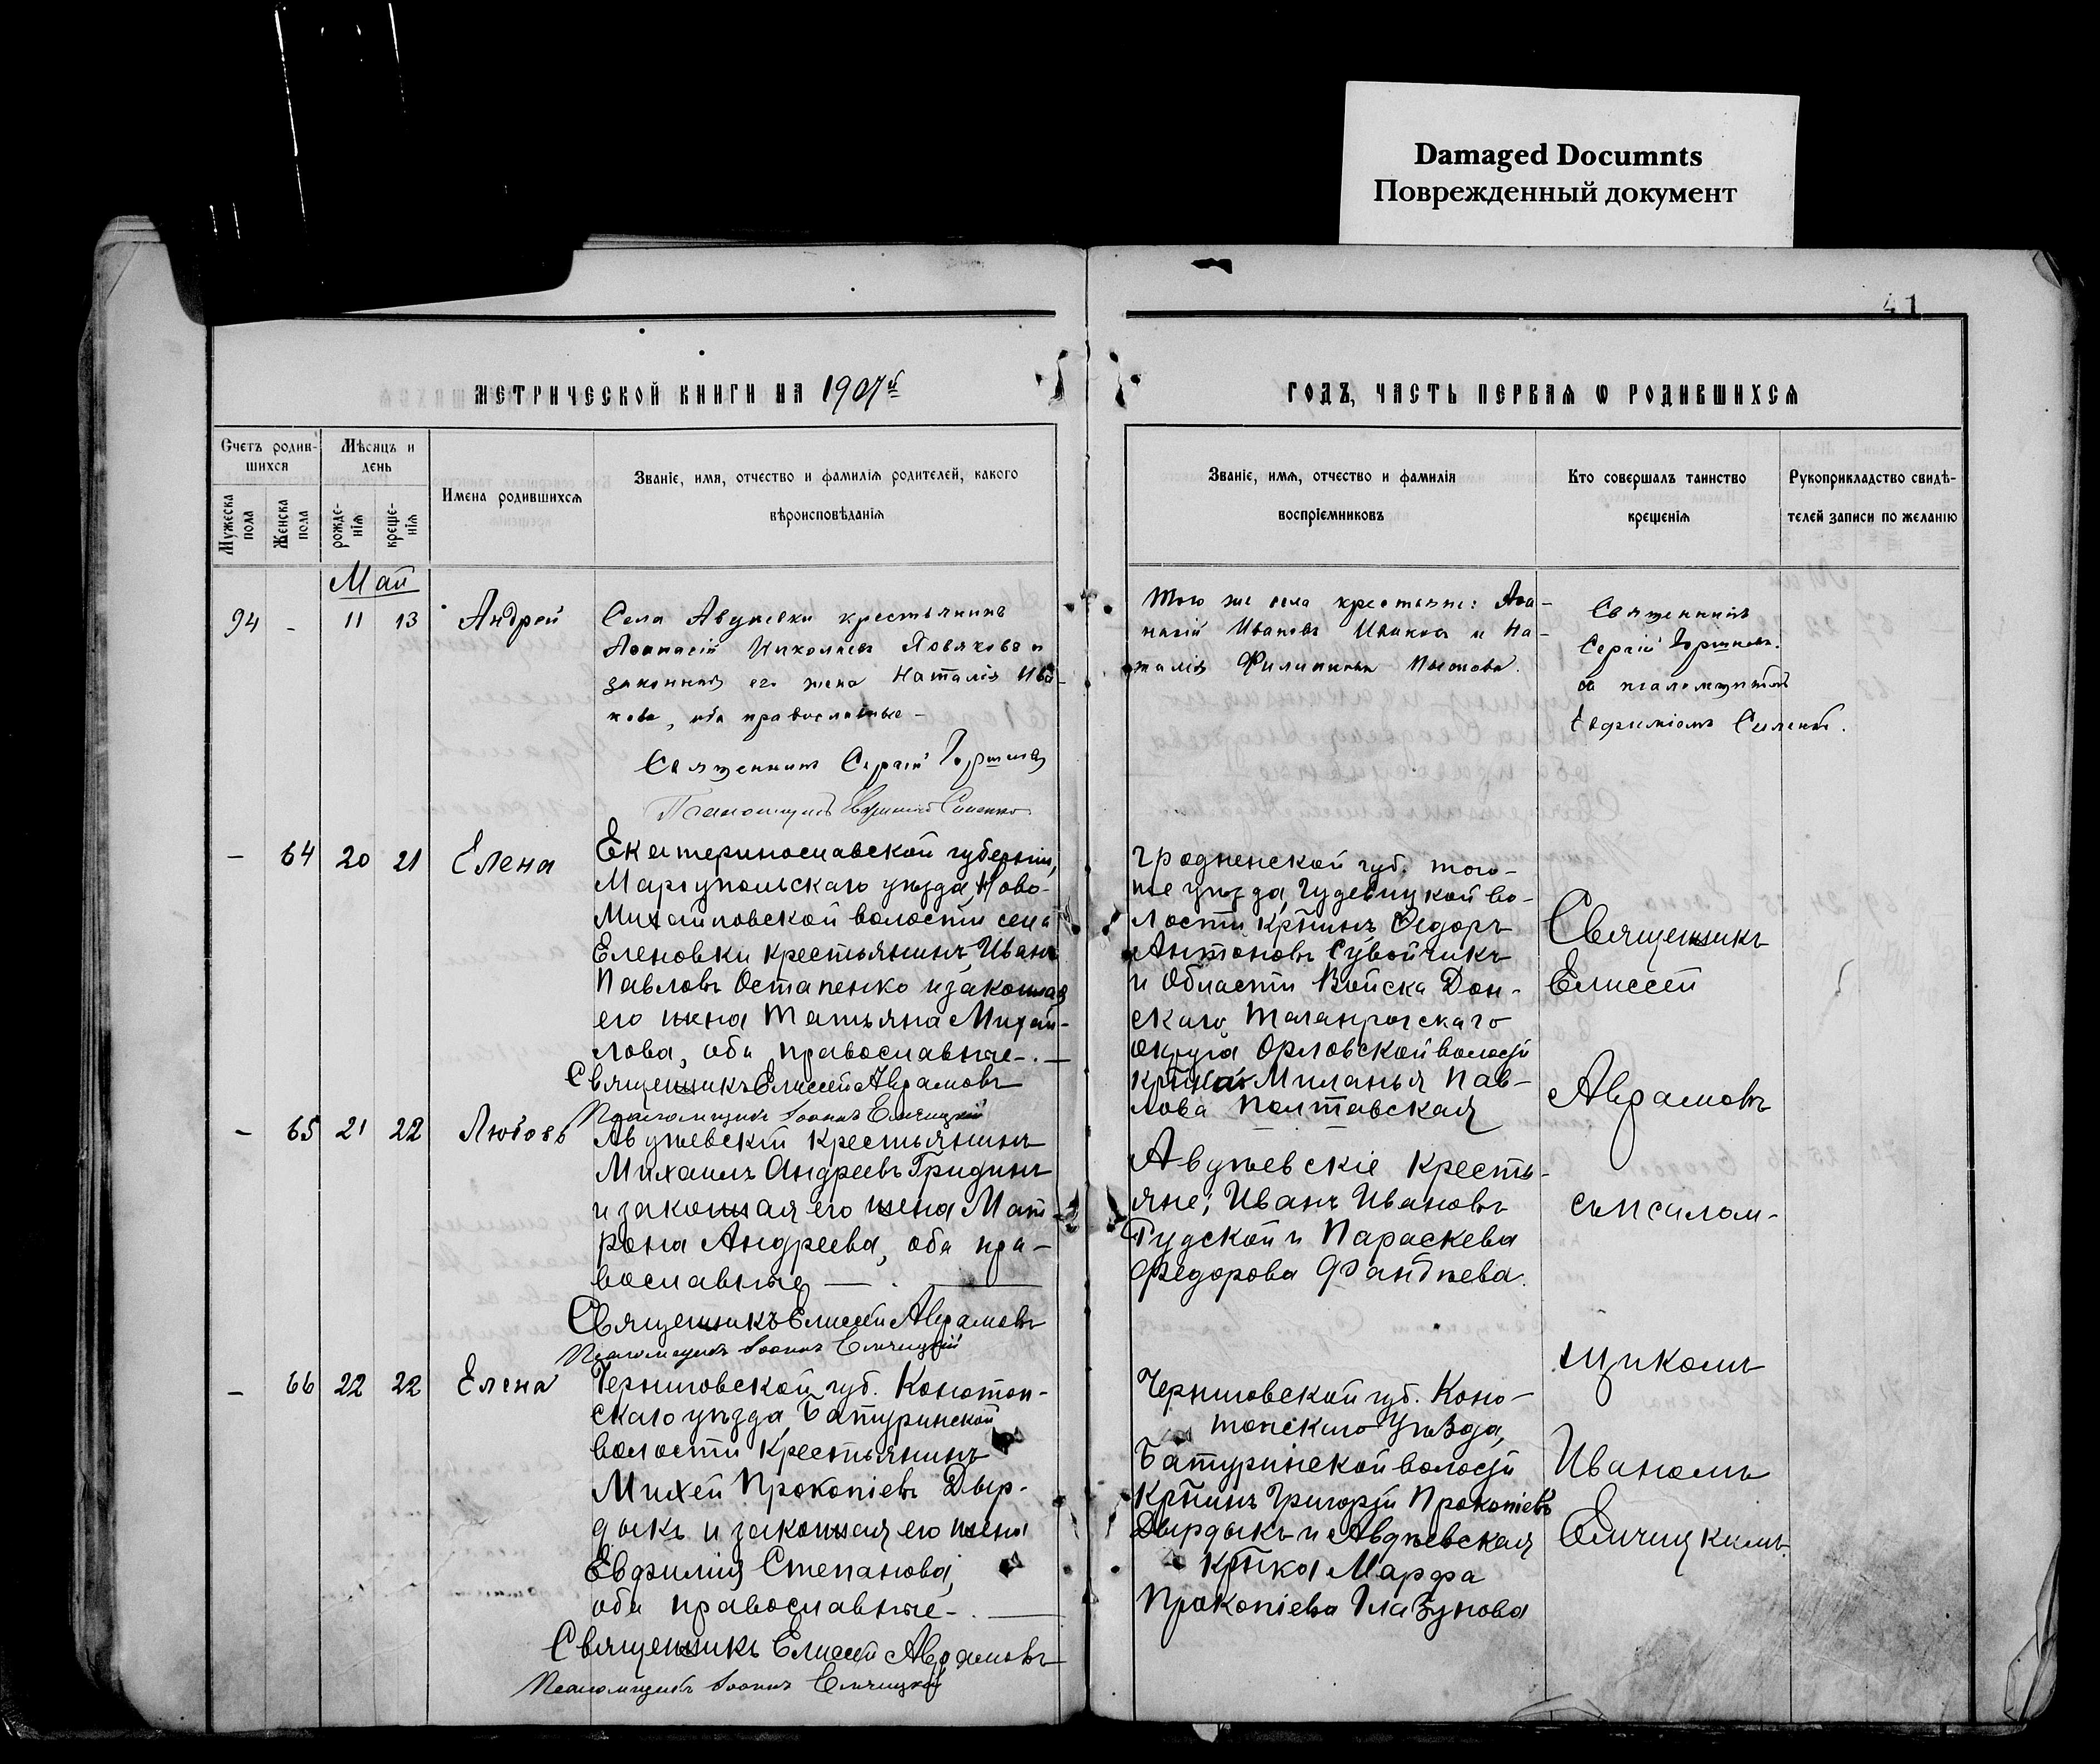 Damaged Documnts
Поврежденный документ
41
МЕТРИЧЕСКОЙ КНИГИ НА 1907й
ГОДЪ, ЧАСТЬ ПЕРВАЯ Ѡ РОДИВШИХСЯ
Счетъ родив-
шихся
Мужеска пола
Женска пола
Мѣсяцъ и
день
рожде-
нія
креще-
нія
Имена родившихся
Званіе, имя, отчество и фамилія родителей, какого
вѣроисповѣданія
Званіе, имя, отчество и фамилія
воспріемниковъ
Кто совершалъ таинство
крещенія
Рукоприкладство свидѣ-
телей записи по желанію
Май
94 - 11 13 Андрей
Села Авдѣевки крестьянинъ
Аѳанасій Николаевъ и
законная его жена Наталія Ива-
нова, оба православные -
Священникъ Сергій
Псаломщикъ Евфимій
Того же села крестьяне: Аѳа-
насій Ивановъ и На-
талія Филипповна
Священникъ
Сергій
съ псаломщикомъ
Евфиміемъ
- 64 20 21 Елена
Екатеринославской губерніи,
Маріупольскаго уѣзда, Ново-
Михайловской волости села
Еленовки крестьянинъ Иванъ
Павловъ Остапенко и законная
его жена Татьяна Михай-
лова, оба православные -. —
Священникъ Елисей Аврамовъ
Псаломщикъ Іоаннъ Елчицкій
Гродненской губ. того-
же уѣзда, Гудевицкой во-
лости крт̃инъ Ѳедоръ
Антоновъ Сувойчикъ
и Области Войска Дон-
скаго, Таганрогскаго
округа Орловской волости
Миланья Пав-
лова Полтавская
- 65 21 22 Любовь
Авдѣевскій крестьянинъ
Михаилъ Андреевъ Гридинъ
и законная его жена Мат
рона Андреева, оба пра-
вославные — . —
Священникъ Елисей Аврамовъ
Псаломщикъ Іоаннъ Елчицкій
Авдѣевскіе кресть-
яне; Иванъ Ивановъ
Гудской и Параскева
Федорова Фандѣева.
- 66 22 22 Елена
Черниговской губ. Конотоп-
скаго уѣзда, Батуринской
волости крестьянинъ
Михей Прокопіевъ Дыр-
дыкъ и законная его жена
Евфимія Степанова,
оба православные -. —
Священникъ Елисей Аврамовъ
Псаломщикъ Іоаннъ Елчицкій
Черниговской губ. Коно-
топскаго уѣзда,
Батуринской волости
крт̃инъ Григорій Прокопіевъ
Дырдыкъ и Авдѣевская
крт̃ка Марфа
Прокопіева Глазунова
Священникъ
Елисей
Аврамовъ
съ псалом-
щикомъ
Иваномъ
Елчицкимъ.